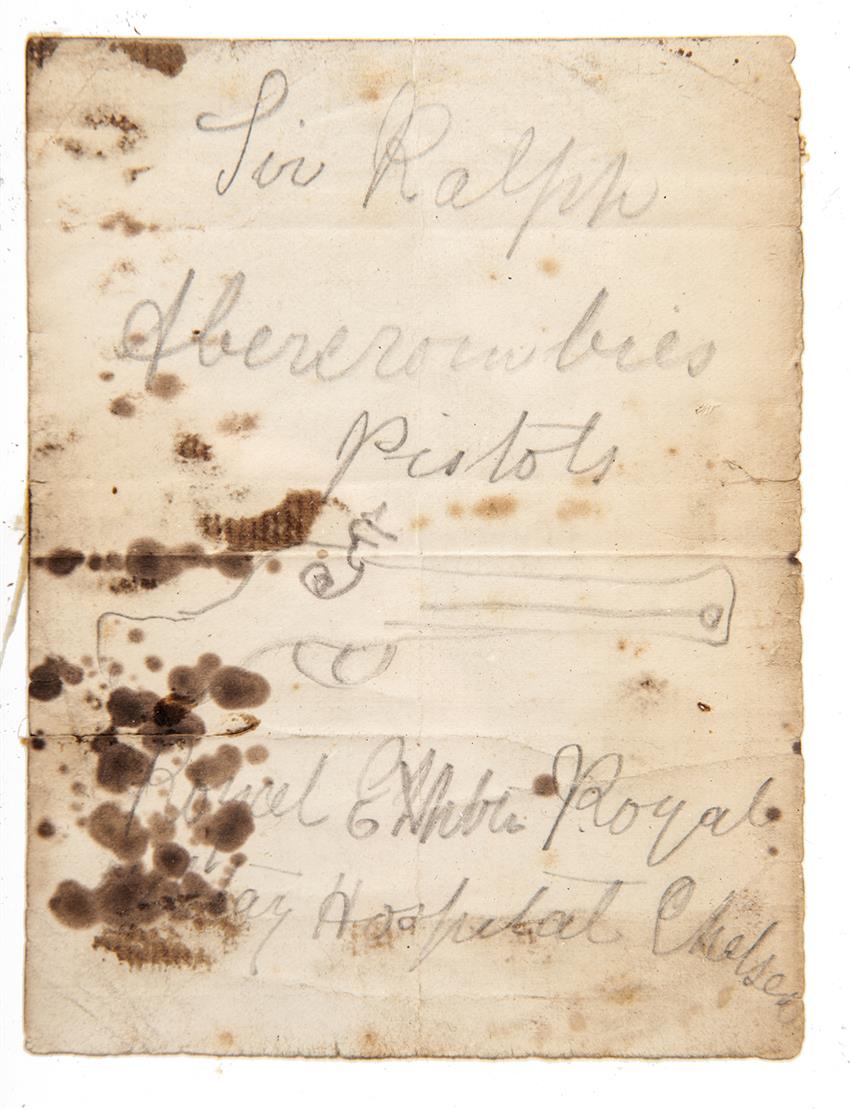 Sir Ralph
Abercrombies
Pistols
Royal
Hospital Chelsea